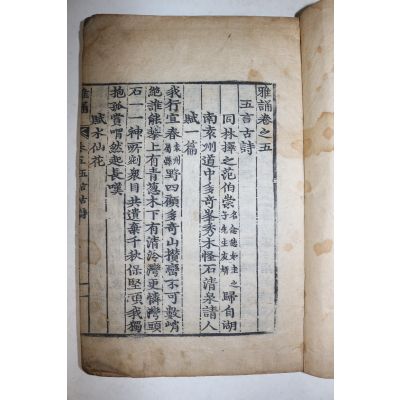 雅誦卷之五
五言古詩
同林擇之范伯崇名念德如圭之子先生友壻歸自湖
南袁州道中多奇峯秀水怪石清泉請人
賦一篇
我行宜春袁州屬縣野四顧多奇山攢巒不可數峭
絕誰能攀上有青葱木下有清泠灣更憐灣頭
石一一神所剜衆目共遺棄千秋保堅頑我獨
抱孤賞喟然起長嘆
賦水仙花
雅誦 卷五 五言古詩 一